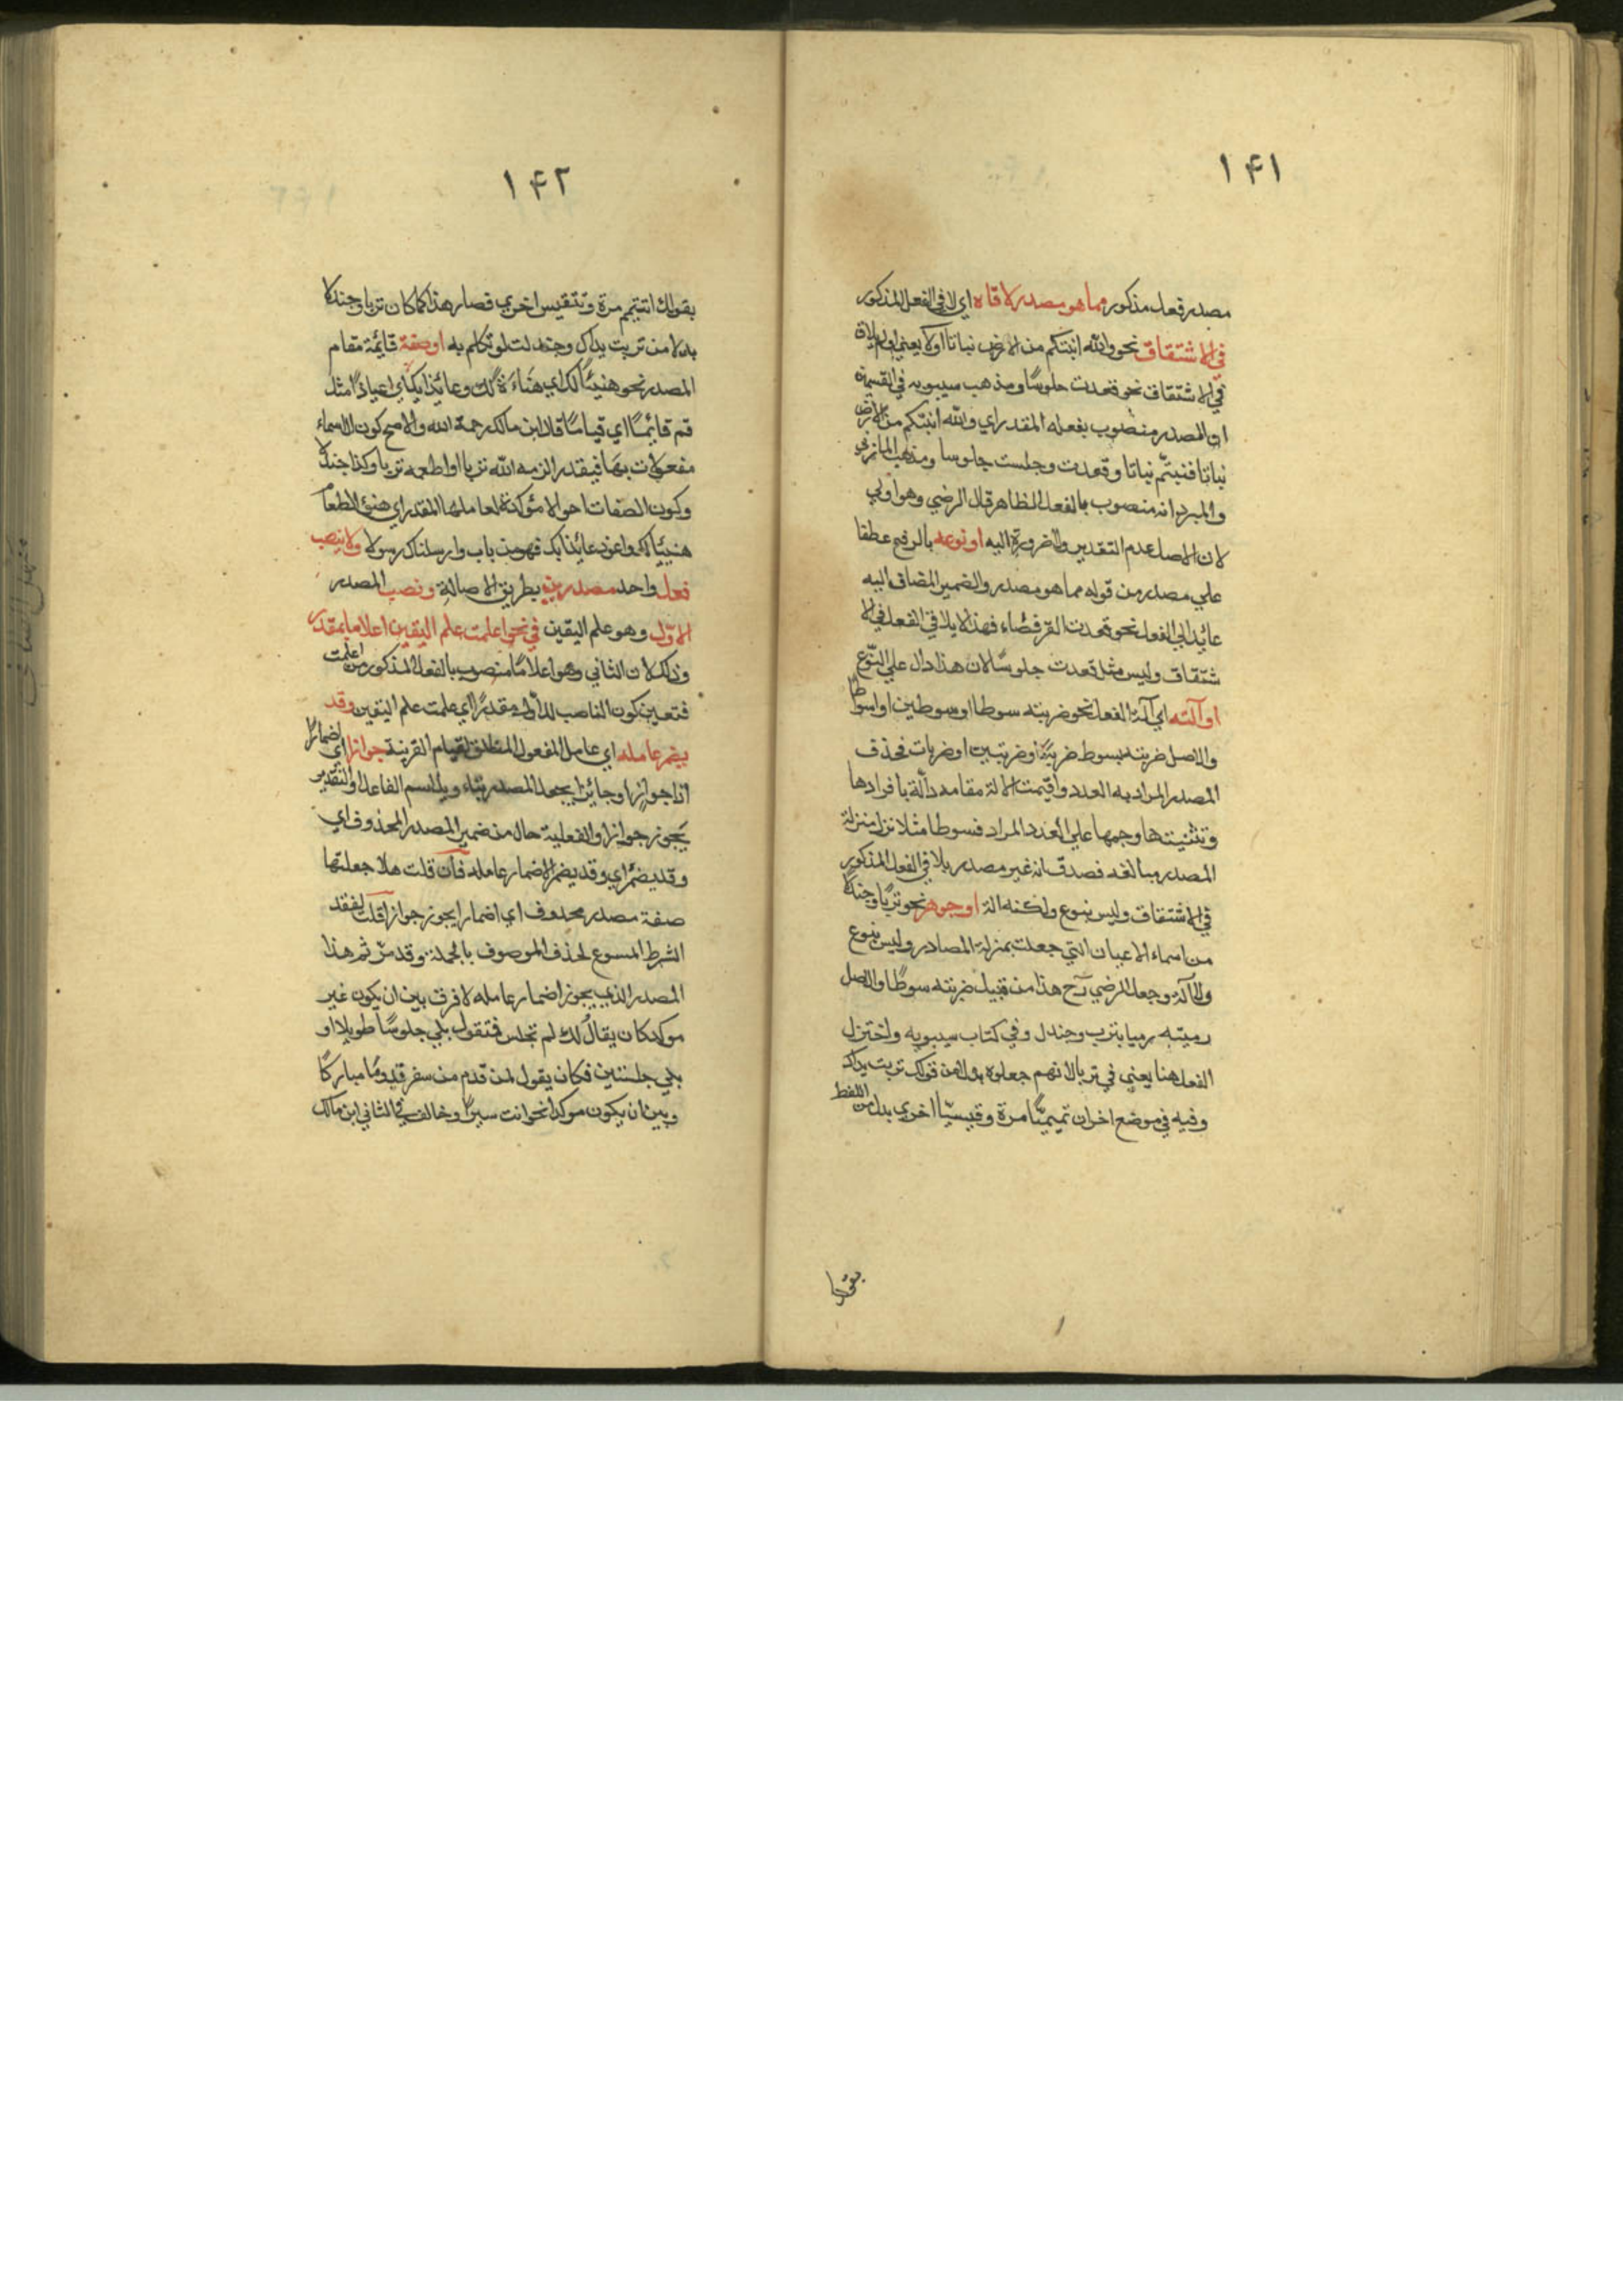 ١٤١
مصدر فعل مذكور مما هو مصدر لاقاه اي لاقي الفعل المذكور
في الاشتقاق نحو والله انبتكم من الارض نباتا اولا يعني او لم يلاق
في الاشتقاق نحو قعدت جلوسًا ومذهب سيبويه في القسمين
ان المصدر منصوب بفعله المقدر اي والله انبتكم من الارض
نباتا فنبتّم نباتا وقعدت وجلست جلوسا ومذهب المازني
والمبرد انه منصوب بالفعل الظاهر قال الرضي وهو اولي
لان الاصل عدم التقدير ولا ضرورة اليه او نوعه بالرفع عطفا
علي مصدر من قوله مما هو مصدر والضمير المضاف اليه
عائد الي الفعل نحو قعدت القرفصاء فهذا لا يلاقي الفعل في الا
شتقاق وليس مثل قعدت جلوسًا لان هذا دال علي النوع
او آلته اي آلة الفعل نحو ضربته سوطا او سوطين او اسواطا
والاصل ضربته بسوط ضربة او ضربتين او ضربات فحذف
المصدر المراد به العدد واقيمت الآلة مقامه دالّة بافرادها
وتثنيتها وجمعها علي العدد المراد فسوطا مثلا نزل منزلة
المصدر مبالغه فصدق انه غير مصدر يلاقي الفعل المذكور
في الاشتقاق وليس بنوع ولكنه الة او جوهر نحو تربًا وجندلًا
من اسماء الاعيان التي جعلت بمنزلة المصادر وليس بنوع
ولا آلة وجعل الرضي رح هذا من قبيل ضربته سوطًا والاصل
رميته رميا بترب وجندل وفي كتاب سيبويه واختزل
الفعل هنا يعني في تربا لانهم جعلوه بدلا من قولك تربت يداك
وفيه في موضع اخر ان تميميًّا مرة وقيسيّا اخري بدل من اللفظ
بقولك
١٤٢
بقولك اتتيمم مرة وتتقيس اخري فصار هذا كما كان تربا وجندلا
بدلا من تربت يداك وجندلت لو تكلم به او صفة قائمة مقام
المصدر نحو هنيئًا لك اي هناءً لك وعائذا بك اي عياذًا مثل
قم قائمًا اي قيامًا قال ابن مالك رحمة الله والاصح كون الاسماء
مفعولات بها فيقدر الزمه الله تربا او اطعمه تربا وكذا جندلا
وكون الصفات احوالا مؤكدة لعاملها المقدر اي هنئ الطعام
هنيئًا لك واعوذ عائذا بك فهو من باب وارسلناك رسولا ولا ينصب
فعل واحد مصدرين بطريق الاصالة ونصب المصدر
الاوّل وهو علم اليقين في نحو اعلمت علم اليقين اعلاما بمقدر
وذلك لان الثاني وهو اعلامًا منصوب بالفعل المذكور من اعلمت
فتعين كون الناصب للاول مقدرًا اي علمت علم اليقين وقد
يضمر عامله اي عامل المفعول المطلق لقيام القرينة جوازا اي اضمارًا
اذا جواز او جائزا بجعل المصدر بتاويل اسم الفاعل او التقدير
يجوز جوازا والفعلية حال من ضمير المصدر المحذوف اي
وقد يضمر اي وقد يضمر الاضمار عامله فان قلت هلا جعلتها
صفة مصدر محذوف اي اضمارا يجوز جوازا قلت لفقد
الشرط المسوغ لحذف الموصوف بالجملة وقد مرّ ثم هذا
المصدر الذي يجوز اضمار عامله لا فرق بين ان يكون غير
موكد كان يقال لك لم تجلس فتقول بلي جلوسًا طويلا او
بلي جلستين فكان يقول لمن قدم من سفر قدومًا مباركًا
وبين ان يكون موكدا نحو انت سيرًا وخالف في الثاني ابن مالك